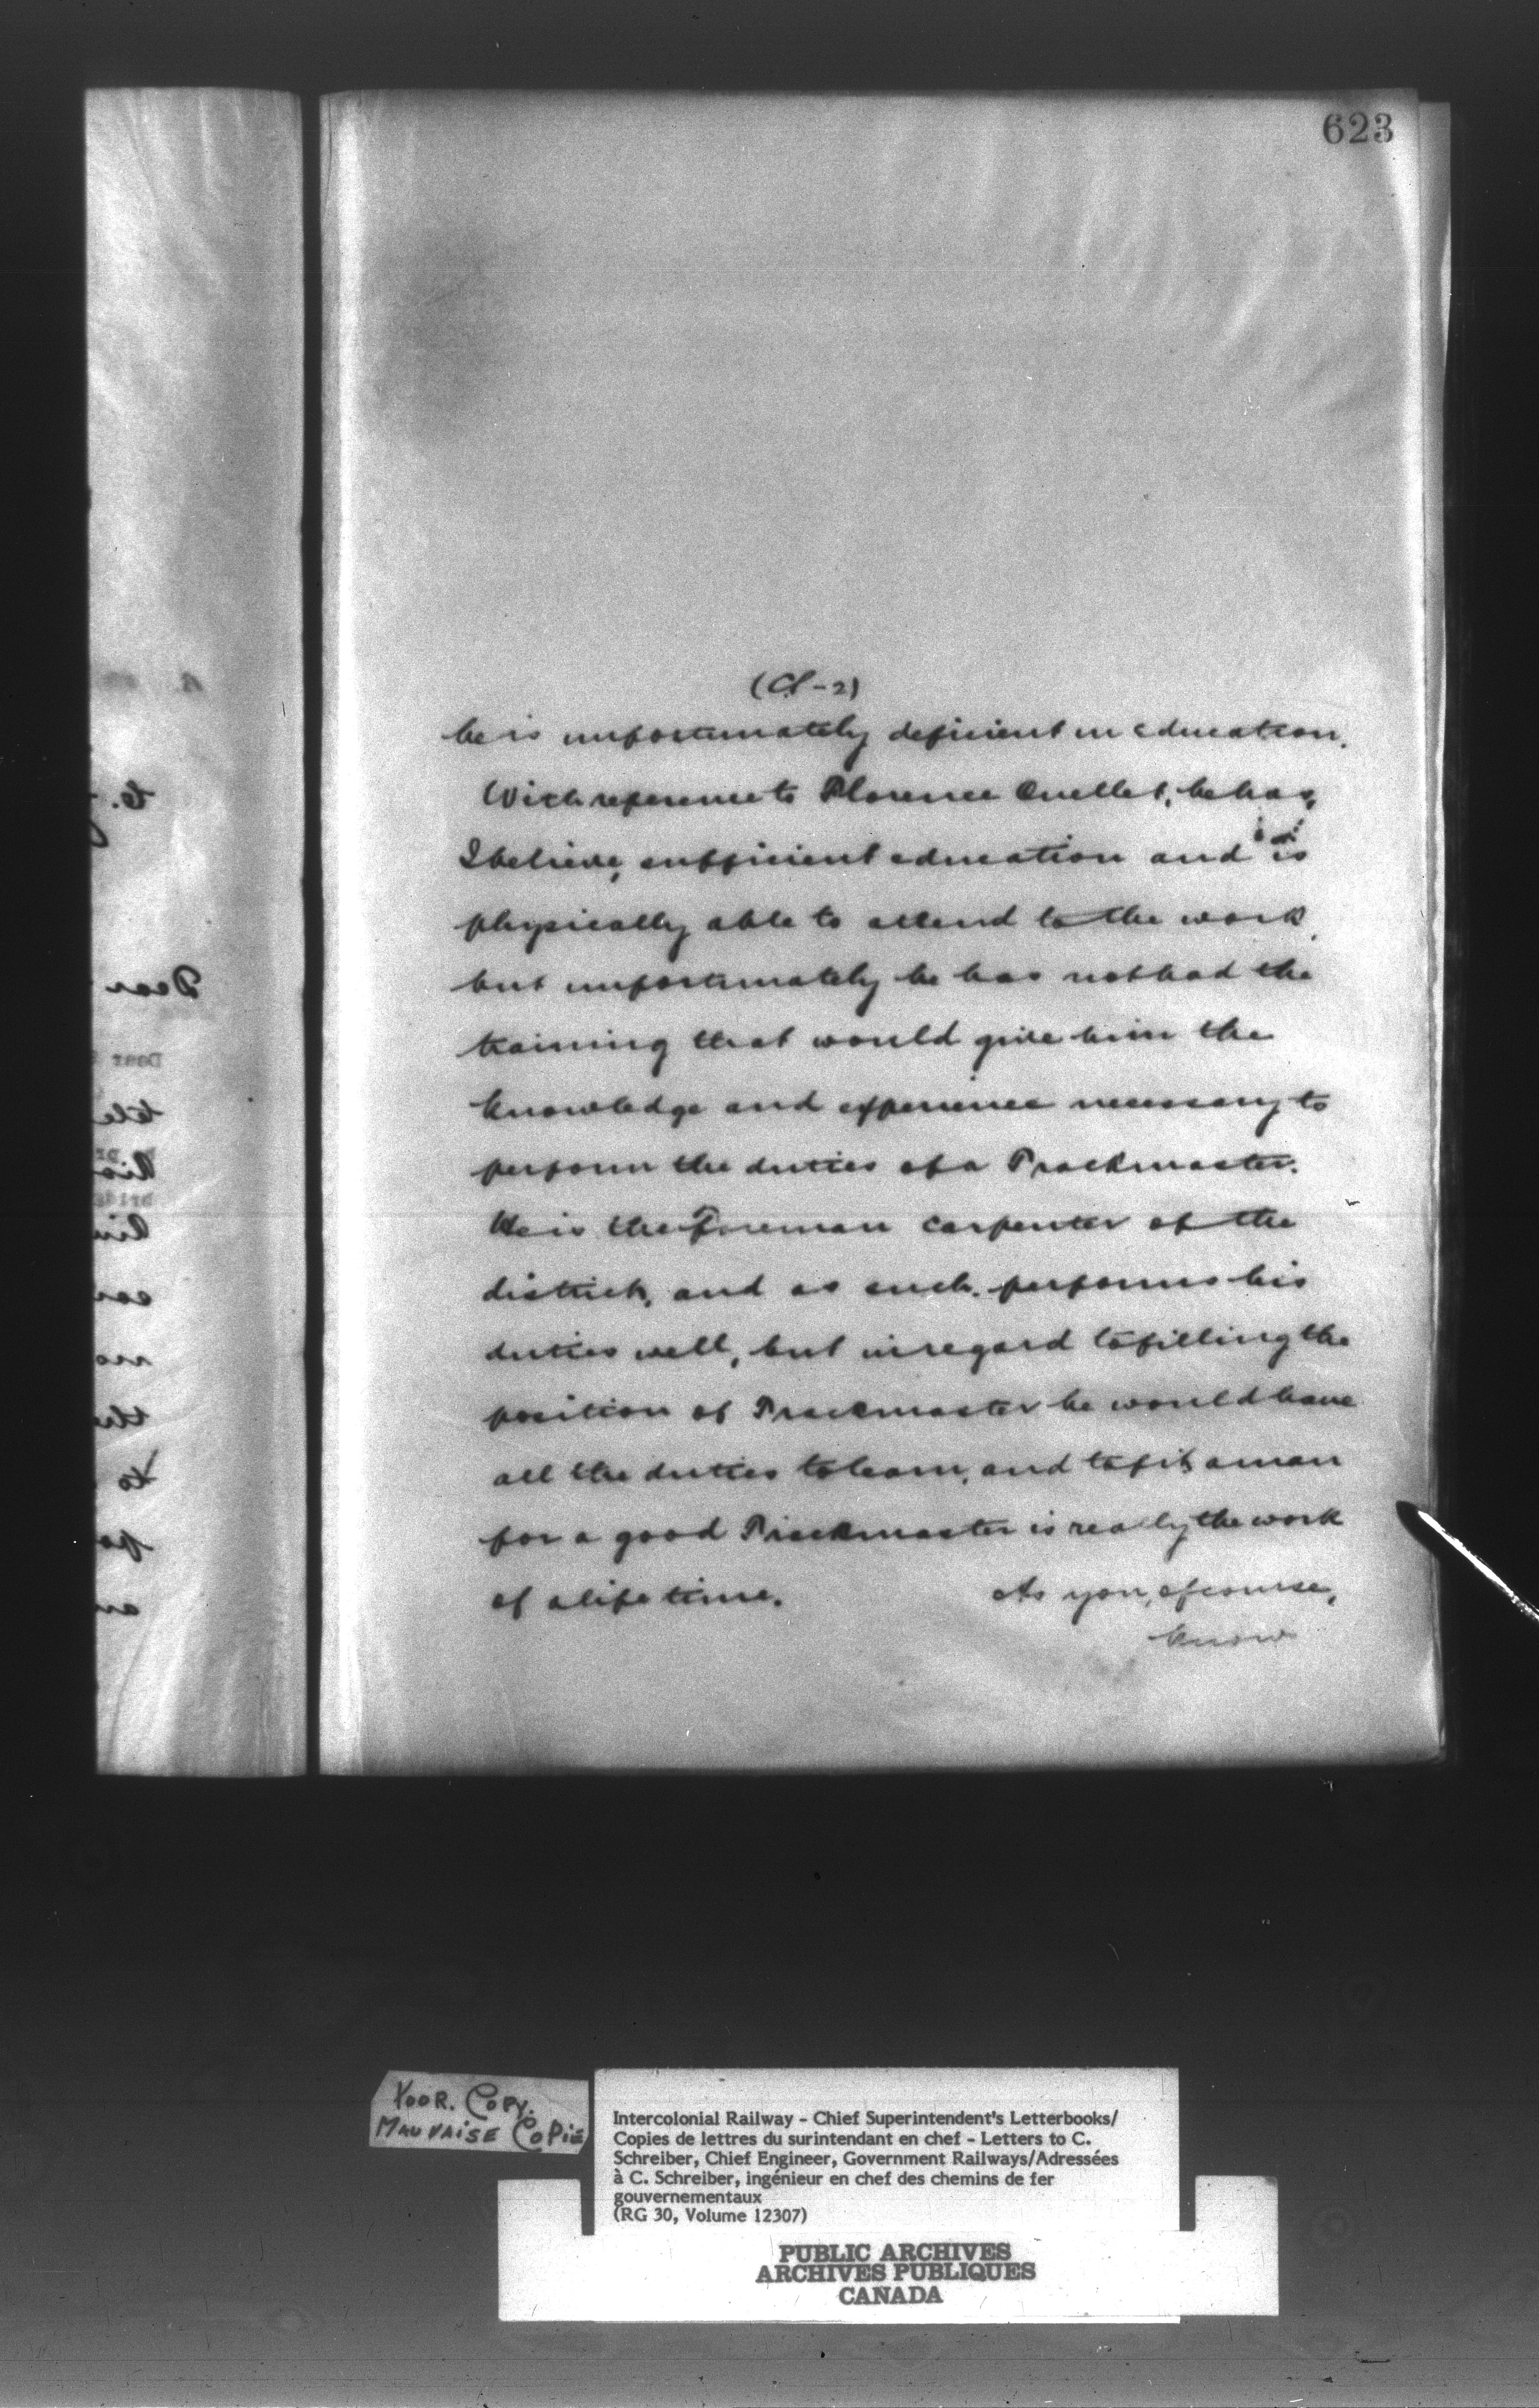 623
(Cl-2)
he is unfortunately deficient in education.
With reference to Florence Ouellet, he has,
I believe, sufficient education and is
physically able to attend to the work,
but unfortunately he has not had the
training that would give him the
knowledge and experience necessary to
perform the duties of a Trackmaster.
He is the Foreman carpenter of the
district, and as such, performs his
duties well, but in regard to filling the
position of Trackmaster he would have
all the duties to learn, and to fit a man
for a good Trackmaster is really the work
of a life time. As you, of course,
know
Dear
Dear
POOR. COPY.
MAUVAISE COPIE
Intercolonial Railway - Chief Superintendent's Letterbooks/
Copies de lettres du surintendant en chef - Letters to C.
Schreiber, Chief Engineer, Government Railways/Adressées
à C. Schreiber, ingénieur en chef des chemins de fer
gouvernementaux
(RG 30, Volume 12307)
PUBLIC ARCHIVES
ARCHIVES PUBLIQUES
CANADA